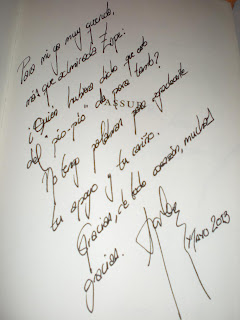 Para mi ya muy querido,
más que admirado Pepe:
¿Quién hubiera dicho que
del pío-pío para tanto?
"CASSU
No tengo palabras para agradecerte
tu apoyo y tu cariño.
Gracias, de todo corazón, muchas
gracias.
Mayo 2013